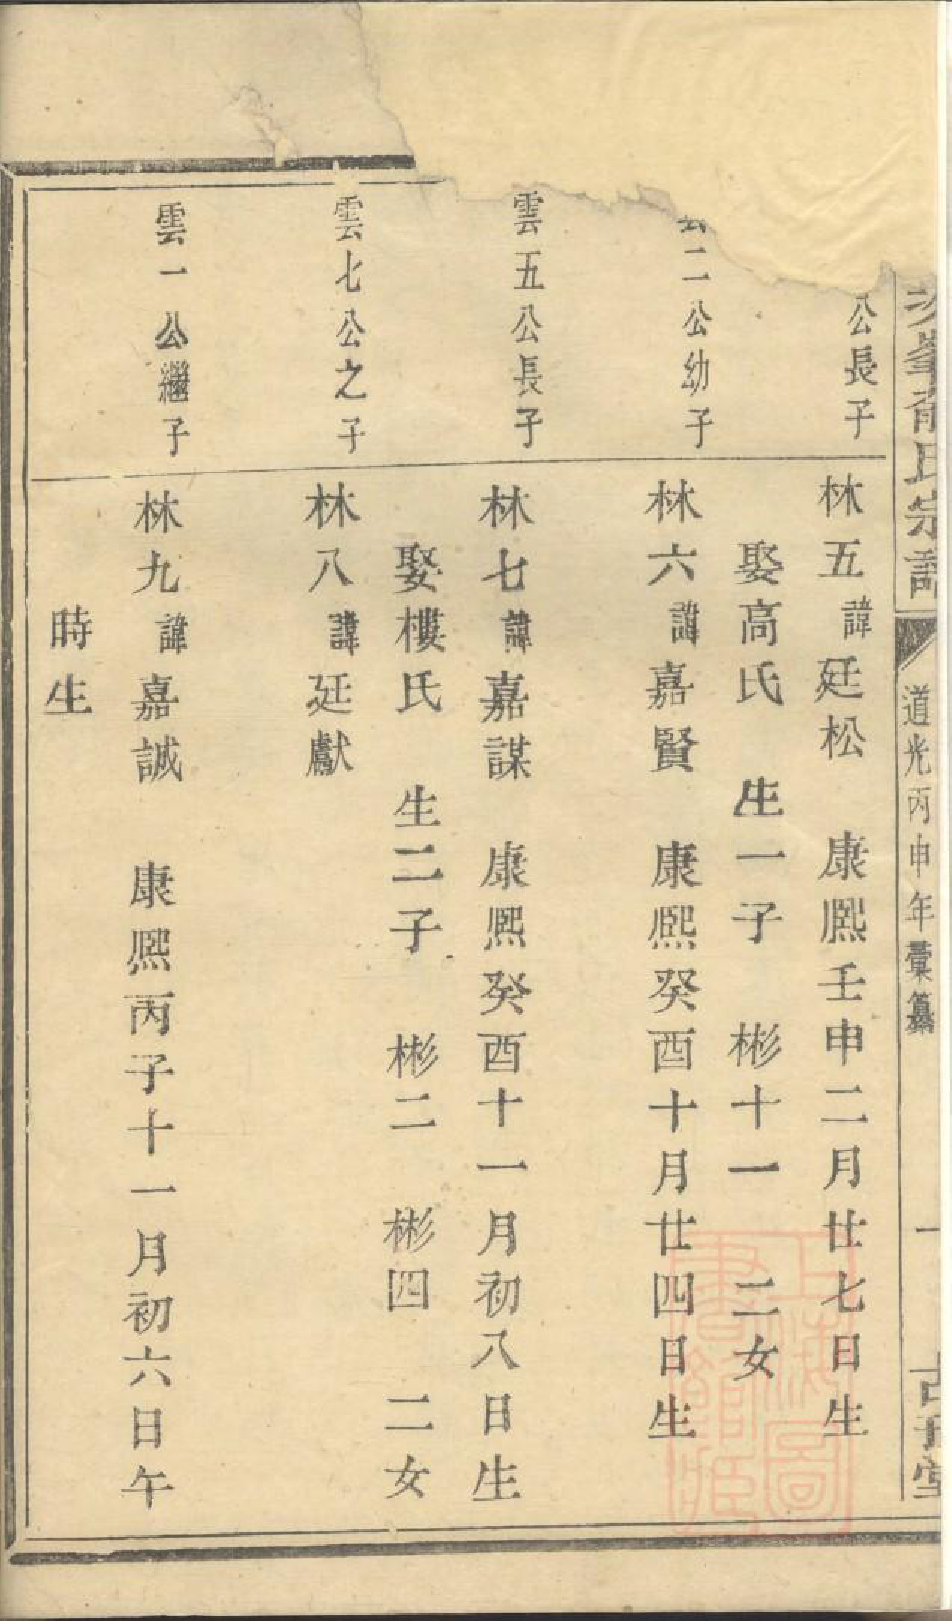 峯俞氏宗譜
道光丙申年彙纂
一
公長子
林五諱廷松 康熙壬申二月廿七日生
娶高氏 生一子 彬十一 二女
雲二公幼子
林六諱嘉賢 康熙癸酉十月廿四日生
雲五公長子
林七諱嘉謀 康熙癸酉十一月初八日生
娶樓氏 生二子 彬二 彬四 二女
雲七公之子
林八諱廷獻
雲一公繼子
林九諱嘉誠 康熙丙子十一月初六日午
時生
上海圖書館藏